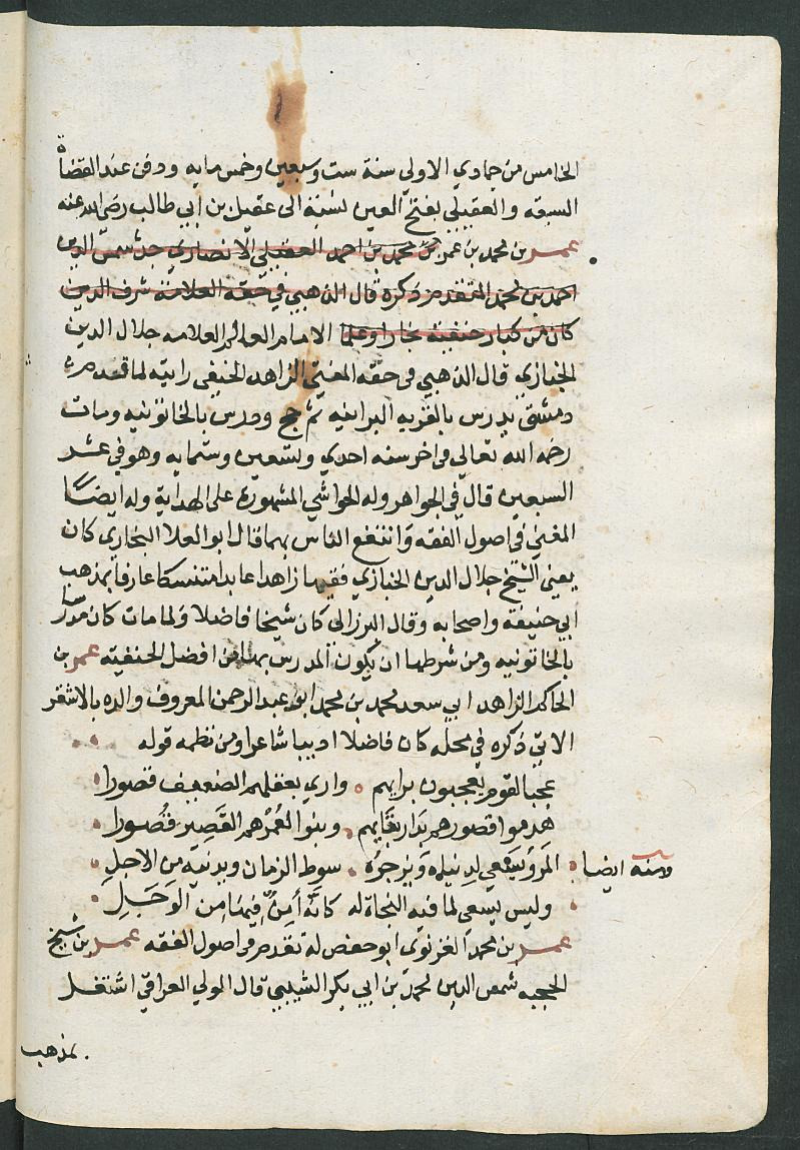 الخامس من جمادي الاولي سنة ست وسبعين وخمس مايه ودفن عند القضاة
السبعه والعقيلي بفتح العين نسبة الى عقيل بن ابي طالب رضي الله عنه
عمر بن محمد بن عمر بن محمد بن احمد العقيلي الانصاري جد شمس الدين
احمد بن محمد المتقدم ذكره قال الذهبي في حقه العلامة شرف الدين
كان من كبار حنفية بخارا وعلما الامام العالم العلامه جلال الدين
الخبازي قال الذهبي في حقه المفتي الزاهد الحنفي رايته لما قدم
دمشق يدرس بالعزيه البرانيه ثم حج ودرس بالخاتونيه ومات
رحمه الله تعالى في اخر سنه احدي وتسعين وستمايه وهو في عشر
السبعين قال في الجواهر وله الحواشي المشهورة على الهداية وله ايضا
المغني في اصول الفقه وانتفع الناس بهما قال ابو العلا البخاري كان
يعني الشيخ جلال الدين الخبازي فقيها زاهدا عابدا متنسكا عارفا بمذهب
ابي حنيفة واصحابه وقال البرزالى كان شيخا فاضلا ولما مات كان مدرس
بالخاتونيه ومن شرطها ان يكون المدرس بها من افضل الحنفيه عمر بن
الحاكم الزاهد ابي سعد محمد بن محمد ابو عبد الرحمن المعروف والده بالاشقر
الاتي ذكره في محله كان فاضلا اديبا شاعرا ومن نظمه قوله
عجبا لقوم يعجبون برايهم واري بعقلهم الضعيف قصورا
هدموا قصورهم بدار بقايهم وبنوا لعمرهم القصير قصورا
ومنه ايضا المرؤ يسعي لدنياه ويزجره سوط الزمان ويدنيه من الاجل
وليس يسعي لما فيه النجاة له كانه أمن فيها من الوجل
عمر بن محمد الغزنوي ابو حفص له تقدم في اصول الفقه عمر بن شيخ
الحجبه شمس الدين محمد بن ابي بكر الشيبي قال الولي العراقي اشتغل
بمذهب